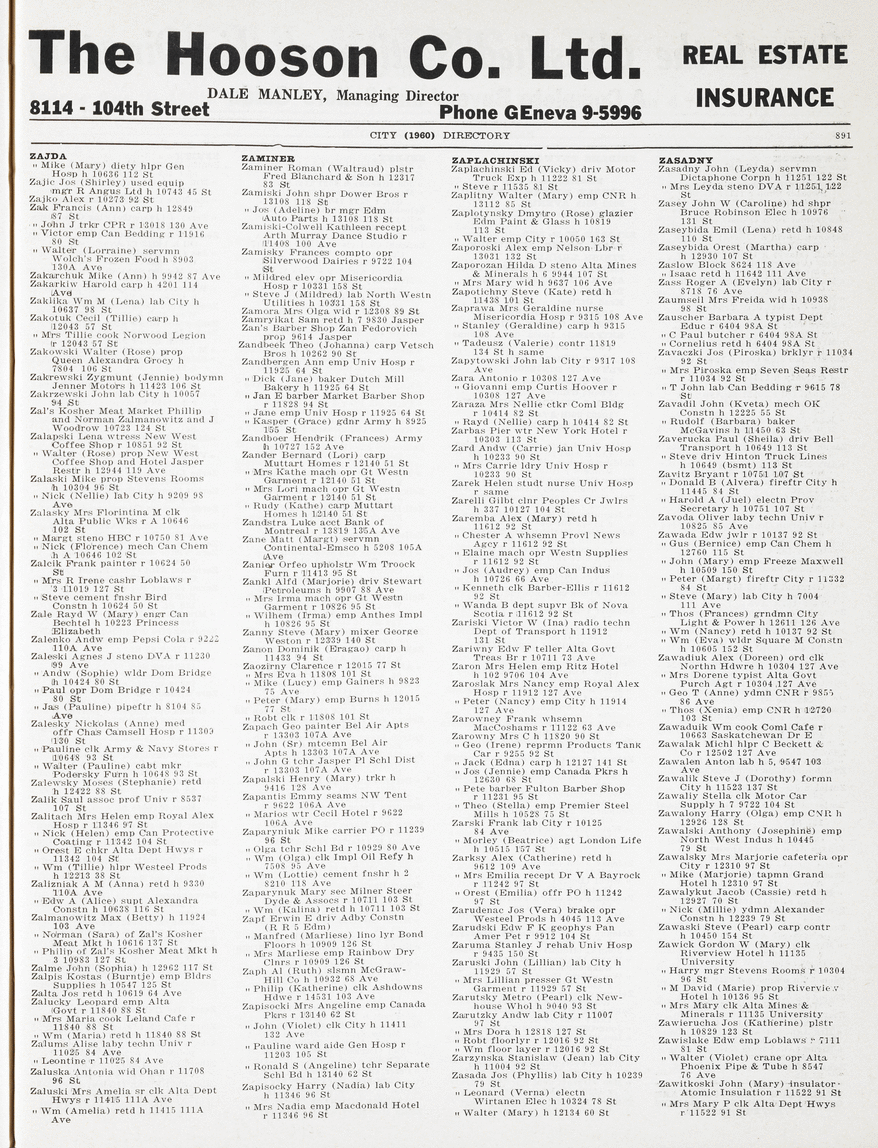 The Hooson Co. Ltd.
REAL ESTATE
INSURANCE
DALE MANLEY, Managing Director
8114 - 104th Street
Phone GEneva 9-5996
CITY (1960) DIRECTORY
891
ZAJDA
" Mike (Mary) diety hlpr Gen
Hosp h 10636 112 St
Zajic Jos (Shirley) used equip
mgr R Angus Ltd h 10743 45 St
Zajko Alex r 10273 92 St
Zak Francis (Ann) carp h 12849
87 St
" John J trkr CPR r 13018 130 Ave
" Victor emp Can Bedding r 11916
80 St
" Walter (Lorraine) servmn
Wolch's Frozen Food h 8903
130A Ave
Zakarchuk Mike (Ann) h 9942 87 Ave
Zakarkiw Harold carp h 4201 114
Ave
Zaklika Wm M (Lena) lab City h
10637 98 St
Zakotuk Cecil (Tillie) carp h
12043 57 St
" Mrs Tillie cook Norwood Legion
r 12043 57 St
Zakowski Walter (Rose) prop
Queen Alexandra Grocy h
7804 106 St
Zakrewski Zygmunt (Jennie) bodymn
Jenner Motors h 11423 106 St
Zakrzewski John lab City h 10057
94 St
Zal's Kosher Meat Market Phillip
and Norman Zalmanowitz and J
Woodrow 10723 124 St
Zalapski Lena wtress New West
Coffee Shop r 10851 92 St
" Walter (Rose) prop New West
Coffee Shop and Hotel Jasper
Restr h 12944 119 Ave
Zalaski Mike prop Stevens Rooms
h 10304 96 St
" Nick (Nellie) lab City h 9209 98
Ave
Zalasky Mrs Florintina M clk
Alta Public Wks r A 10646
102 St
" Margt steno HBC r 10750 81 Ave
" Nick (Florence) mech Can Chem
h A 10646 102 St
Zalcik Frank painter r 10624 50
St
" Mrs R Irene cashr Loblaws r
3 11019 127 St
" Steve cement fnshr Bird
Constn h 10624 50 St
Zale Rayd W (Mary) engr Can
Bechtel h 10223 Princess
Elizabeth
Zalenko Andw emp Pepsi Cola r 9222
110A Ave
Zaleski Agnes J steno DVA r 11230
99 Ave
" Andw (Sophie) wldr Dom Bridge
h 10424 80 St
" Paul opr Dom Bridge r 10424
80 St
" Jas (Pauline) pipeftr h 8104 85
Ave
Zalesky Nickolas (Anne) med
offr Chas Camsell Hosp r 11309
130 St
" Pauline clk Army & Navy Stores r
10648 93 St
" Walter (Pauline) cabt mkr
Podersky Furn h 10648 93 St
Zalewsky Moses (Stephanie) retd
h 12422 88 St
Zalik Saul assoc prof Univ r 8537
107 St
Zalitach Mrs Helen emp Royal Alex
Hosp r 11346 97 St
" Nick (Helen) emp Can Protective
Coating r 11342 104 St
" Orest E chkr Alta Dept Hwys r
11342 104 St
" Wm (Tillie) hlpr Westeel Prods
h 12213 38 St
Zalizniak A M (Anna) retd h 9330
110A Ave
" Edw A (Alice) supt Alexandra
Constn h 10638 116 St
Zalmanowitz Max (Betty) h 11924
103 Ave
" Norman (Sara) of Zal's Kosher
Meat Mkt h 10616 137 St
" Philip of Zal's Kosher Meat Mkt h
3 10983 127 St
Zalme John (Sophia) h 12962 117 St
Zalpis Kostas (Burntje) emp Bldrs
Supplies h 10547 125 St
Zalta Jos retd h 10619 64 Ave
Zalucky Leopard emp Alta
Govt r 11840 88 St
" Mrs Maria cook Leland Cafe r
11840 88 St
" Wm (Maria) retd h 11840 88 St
Zalums Alise laby techn Univ r
11025 84 Ave
" Leontine r 11025 84 Ave
Zaluska Antonia wid Ohan r 11708
96 St
Zaluski Mrs Amelia sr clk Alta Dept
Hwys r 11415 111A Ave
" Wm (Amelia) retd h 11415 111A
Ave
ZAMINER
Zaminer Roman (Waltraud) plstr
Fred Blanchard & Son h 12317
83 St
Zamiski John shpr Dower Bros r
13108 118 St
" Jos (Adeline) br mgr Edm
Auto Parts h 13108 118 St
Zamiski-Colwell Kathleen recept
Arth Murray Dance Studio r
11408 100 Ave
Zamisky Frances compto opr
Silverwood Dairies r 9722 104
St
" Mildred elev opr Misericordia
Hosp r 10331 158 St
" Steve J (Mildred) lab North Westn
Utilities h 10331 158 St
Zamora Mrs Olga wid r 12308 89 St
Zamryikat Sam retd h 7 9830 Jasper
Zan's Barber Shop Zan Fedorovich
prop 9614 Jasper
Zandbeek Theo (Johanna) carp Vetsch
Bros h 10262 90 St
Zandbergen Ann emp Univ Hosp r
11925 64 St
" Dick (Jane) baker Dutch Mill
Bakery h 11925 64 St
" Jan E barber Market Barber Shop
r 11828 94 St
" Jane emp Univ Hosp r 11925 64 St
" Kasper (Grace) gdnr Army h 8925
155 St
Zandboer Hendrik (Frances) Army
h 10727 152 Ave
Zander Bernard (Lori) carp
Muttart Homes r 12140 51 St
" Mrs Kathe mach opr Gt Westn
Garment r 12140 51 St
" Mrs Lori mach opr Gt Westn
Garment r 12140 51 St
" Rudy (Kathe) carp Muttart
Homes h 12140 51 St
Zandstra Luke acct Bank of
Montreal r 13819 135A Ave
Zane Matt (Margt) servmn
Continental-Emsco h 5208 105A
Ave
Zanier Orfeo upholstr Wm Troock
Furn r 11413 95 St
Zankl Alfd (Marjorie) driv Stewart
Petroleums h 9907 88 Ave
" Mrs Irma mach opr Gt Westn
Garment r 10826 95 St
" Wilhem (Irma) emp Anthes Impl
h 10826 95 St
Zanny Steve (Mary) mixer George
Weston r 12339 140 St
Zanon Dominik (Eragao) carp h
11433 94 St
Zaozirny Clarence r 12015 77 St
" Mrs Eva h 11808 101 St
" Mike (Lucy) emp Gainers h 9823
75 Ave
" Peter (Mary) emp Burns h 12015
77 St
" Robt clk r 11808 101 St
Zapach Geo painter Bel Air Apts
r 13303 107A Ave
" John (Sr) mtcemn Bel Air
Apts h 13303 107A Ave
" John G tchr Jasper Pl Schl Dist
r 13303 107A Ave
Zapalski Henry (Mary) trkr h
9416 128 Ave
Zapantis Emmy seams NW Tent
r 9622 106A Ave
" Marios wtr Cecil Hotel r 9622
106A Ave
Zaparyniuk Mike carrier PO r 11239
96 St
" Olga tchr Schl Bd r 10929 80 Ave
" Wm (Olga) clk Impl Oil Refy h
7508 95 Ave
" Wm (Lottie) cement fnshr h 2
8210 118 Ave
Zaparynuk Mary sec Milner Steer
Dyde & Assocs r 10711 103 St
" Wm (Kalina) retd h 10711 103 St
Zapf Erwin E driv Adby Constn
(R R 5 Edm)
" Manfred (Marliese) lino lyr Bond
Floors h 10909 126 St
" Mrs Marliese emp Rainbow Dry
Clnrs r 10909 126 St
Zaph Al (Ruth) slsmn McGraw-
Hill Co h 10932 68 Ave
" Philip (Katherine) clk Ashdowns
Hdwe r 14531 103 Ave
Zapisocki Mrs Angeline emp Canada
Pkrs r 13140 62 St
" John (Violet) clk City h 11411
132 Ave
" Pauline ward aide Gen Hosp r
11203 105 St
" Ronald S (Angeline) tchr Separate
Schl Bd h 13140 62 St
Zapisocky Harry (Nadia) lab City
h 11346 96 St
" Mrs Nadia emp Macdonald Hotel
r 11346 96 St
ZAPLACHINSKI
Zaplachinski Ed (Vicky) driv Motor
Truck Exp h 11222 81 St
" Steve r 11535 81 St
Zaplitny Walter (Mary) emp CNR h
13112 85 St
Zaplotynsky Dmytro (Rose) glazier
Edm Paint & Glass h 10819
113 St
" Walter emp City r 10050 163 St
Zaporoski Alex emp Nelson Lbr r
13031 132 St
Zaporozan Hilda D steno Alta Mines
& Minerals h 6 9944 107 St
" Mrs Mary wid h 9637 106 Ave
Zapotichny Steve (Kate) retd h
11438 101 St
Zaprawa Mrs Geraldine nurse
Misericordia Hosp r 9315 108 Ave
" Stanley (Geraldine) carp h 9315
108 Ave
" Tadeusz (Valerie) contr 11819
134 St h same
Zapytowski John lab City r 9317 108
Ave
Zara Antonio r 10308 127 Ave
" Giovanni emp Curtis Hoover r
10308 127 Ave
Zaraza Mrs Nellie ctkr Coml Bldg
r 10414 82 St
" Rayd (Nellie) carp h 10414 82 St
Zarbas Pier wtr New York Hotel r
10303 113 St
Zard Andw (Carrie) jan Univ Hosp
h 10233 90 St
" Mrs Carrie ldry Univ Hosp r
10233 90 St
Zarek Helen studt nurse Univ Hosp
r same
Zarelli Gilbt clnr Peoples Cr Jwlrs
h 337 10127 104 St
Zaremba Alex (Mary) retd h
11612 92 St
" Chester A whsemn Provl News
Agcy r 11612 92 St
" Elaine mach opr Westn Supplies
r 11612 92 St
" Jos (Audrey) emp Can Indus
h 10726 66 Ave
" Kenneth clk Barber-Ellis r 11612
92 St
" Wanda B dept supvr Bk of Nova
Scotia r 11612 92 St
Zariski Victor W (Ina) radio techn
Dept of Transport h 11912
131 St
Zariwny Edw F teller Alta Govt
Treas Br r 10711 73 Ave
Zaron Mrs Helen emp Ritz Hotel
h 102 9706 104 Ave
Zaroslak Mrs Nancy emp Royal Alex
Hosp r 11912 127 Ave
" Peter (Nancy) emp City h 11914
127 Ave
Zarowney Frank whsemn
MacCoshams r 11122 63 Ave
Zarowny Mrs C h 11820 90 St
" Geo (Irene) reprmn Products Tank
Car r 9255 92 St
" Jack (Edna) carp h 12127 141 St
" Jos (Jennie) emp Canada Pkrs h
12630 68 St
" Pete barber Fulton Barber Shop
r 11231 95 St
" Theo (Stella) emp Premier Steel
Mills h 10528 75 St
Zarski Frank lab City r 10125
84 Ave
" Morley (Beatrice) agt London Life
h 10515 157 St
Zarksy Alex (Catherine) retd h
9612 109 Ave
" Mrs Emilia recept Dr V A Bayrock
r 11242 97 St
" Orest (Emilia) offr PO h 11242
97 St
Zarudenac Jos (Vera) brake opr
Westeel Prods h 4045 113 Ave
Zarudski Edw F K geophys Pan
Amer Pet r 9912 104 St
Zaruma Stanley J rehab Univ Hosp
r 9435 150 St
Zaruski John (Lillian) lab City h
11929 57 St
" Mrs Lillian presser Gt Westn
Garment r 11929 57 St
Zarutsky Metro (Pearl) clk New-
house Whol h 9040 93 St
Zarutzky Andw lab City r 11007
97 St
" Mrs Dora h 12818 127 St
" Robt floorlyr r 12016 92 St
" Wm floor layer r 12016 92 St
Zarzynska Stanislaw (Jean) lab City
h 11004 92 St
Zasada Jos (Phyllis) lab City h 10239
79 St
" Leonard (Verna) electn
Wirtanen Elec h 10324 78 St
" Walter (Mary) h 12134 60 St
ZASADNY
Zasadny John (Leyda) servmn
Dictaphone Corpn h 11251 122 St
" Mrs Leyda steno DVA r 11251 122
St
Zasey John W (Caroline) hd shpr
Bruce Robinson Elec h 10976
131 St
Zaseybida Emil (Lena) retd h 10848
110 St
Zaseybida Orest (Martha) carp
h 12930 107 St
Zaslow Block 8624 118 Ave
" Isaac retd h 11642 111 Ave
Zass Roger A (Evelyn) lab City r
8718 76 Ave
Zaumseil Mrs Freida wid h 10938
98 St
Zauscher Barbara A typist Dept
Educ r 6404 98A St
" C Paul butcher r 6404 98A St
" Cornelius retd h 6404 98A St
Zavaczki Jos (Piroska) brklyr h 11034
92 St
" Mrs Piroska emp Seven Seas Restr
r 11034 92 St
" T John lab Can Bedding r 9615 78
St
Zavadil John (Kveta) mech OK
Constn h 12225 55 St
" Rudolf (Barbara) baker
McGavins h 11450 63 St
Zaverucka Paul (Sheila) driv Bell
Transport h 10649 113 St
" Steve driv Hinton Truck Lines
h 10649 (bsmt) 113 St
Zavitz Bryant r 10751 107 St
" Donald B (Alvera) fireftr City h
11445 84 St
" Harold A (Juel) electn Prov
Secretary h 10751 107 St
Zavoda Oliver laby techn Univ r
10825 85 Ave
Zawada Edw jwlr r 10137 92 St
" Gus (Bernice) emp Can Chem h
12760 115 St
" John (Mary) emp Freeze Maxwell
h 10509 150 St
" Peter (Margt) fireftr City r 11332
84 St
" Steve (Mary) lab City h 7004
111 Ave
" Thos (Frances) grndmn City
Light & Power h 12611 126 Ave
" Wm (Nancy) retd h 10137 92 St
" Wm (Eva) wldr Square M Constn
h 10605 152 St
Zawadiuk Alex (Doreen) ord clk
Northn Hdwre h 10304 127 Ave
" Mrs Dorene typist Alta Govt
Purch Agt r 10304 127 Ave
" Geo T (Anne) ydmn CNR r 9855
86 Ave
" Thos (Xenia) emp CNR h 12720
103 St
Zawaduik Wm cook Coml Cafe r
10663 Saskatchewan Dr E
Zawalak Michl hlpr C Beckett &
Co r 12502 127 Ave
Zawalen Anton lab h 5, 9547 103
Ave
Zawalik Steve J (Dorothy) formn
City h 11523 137 St
Zawaliy Stella clk Motor Car
Supply h 7 9722 104 St
Zawalony Harry (Olga) emp CNR h
12926 128 St
Zawalski Anthony (Josephine) emp
North West Indus h 10445
79 St
Zawalsky Mrs Marjorie cafeteria opr
City r 12310 97 St
" Mike (Marjorie) tapmn Grand
Hotel h 12310 97 St
Zawalykut Jacob (Cassie) retd h
12927 70 St
" Nick (Millie) ydmn Alexander
Constn h 12239 79 St
Zawaski Steve (Pearl) carp contr
h 10450 154 St
Zawick Gordon W (Mary) clk
Riverview Hotel h 11135
University
" Harry mgr Stevens Rooms r 10304
96 St
" M David (Marie) prop Riverview
Hotel h 10136 95 St
" Mrs Mary clk Alta Mines &
Minerals r 11135 University
Zawierucha Jos (Katherine) plstr
h 10829 123 St
Zawislake Edw emp Loblaws r 7111
81 St
" Walter (Violet) crane opr Alta
Phoenix Pipe & Tube h 8547
76 Ave
Zawitkoski John (Mary) insulator
Atomic Insulation r 11522 91 St
" Mrs Mary P clk Alta Dept Hwys
r 11522 91 St